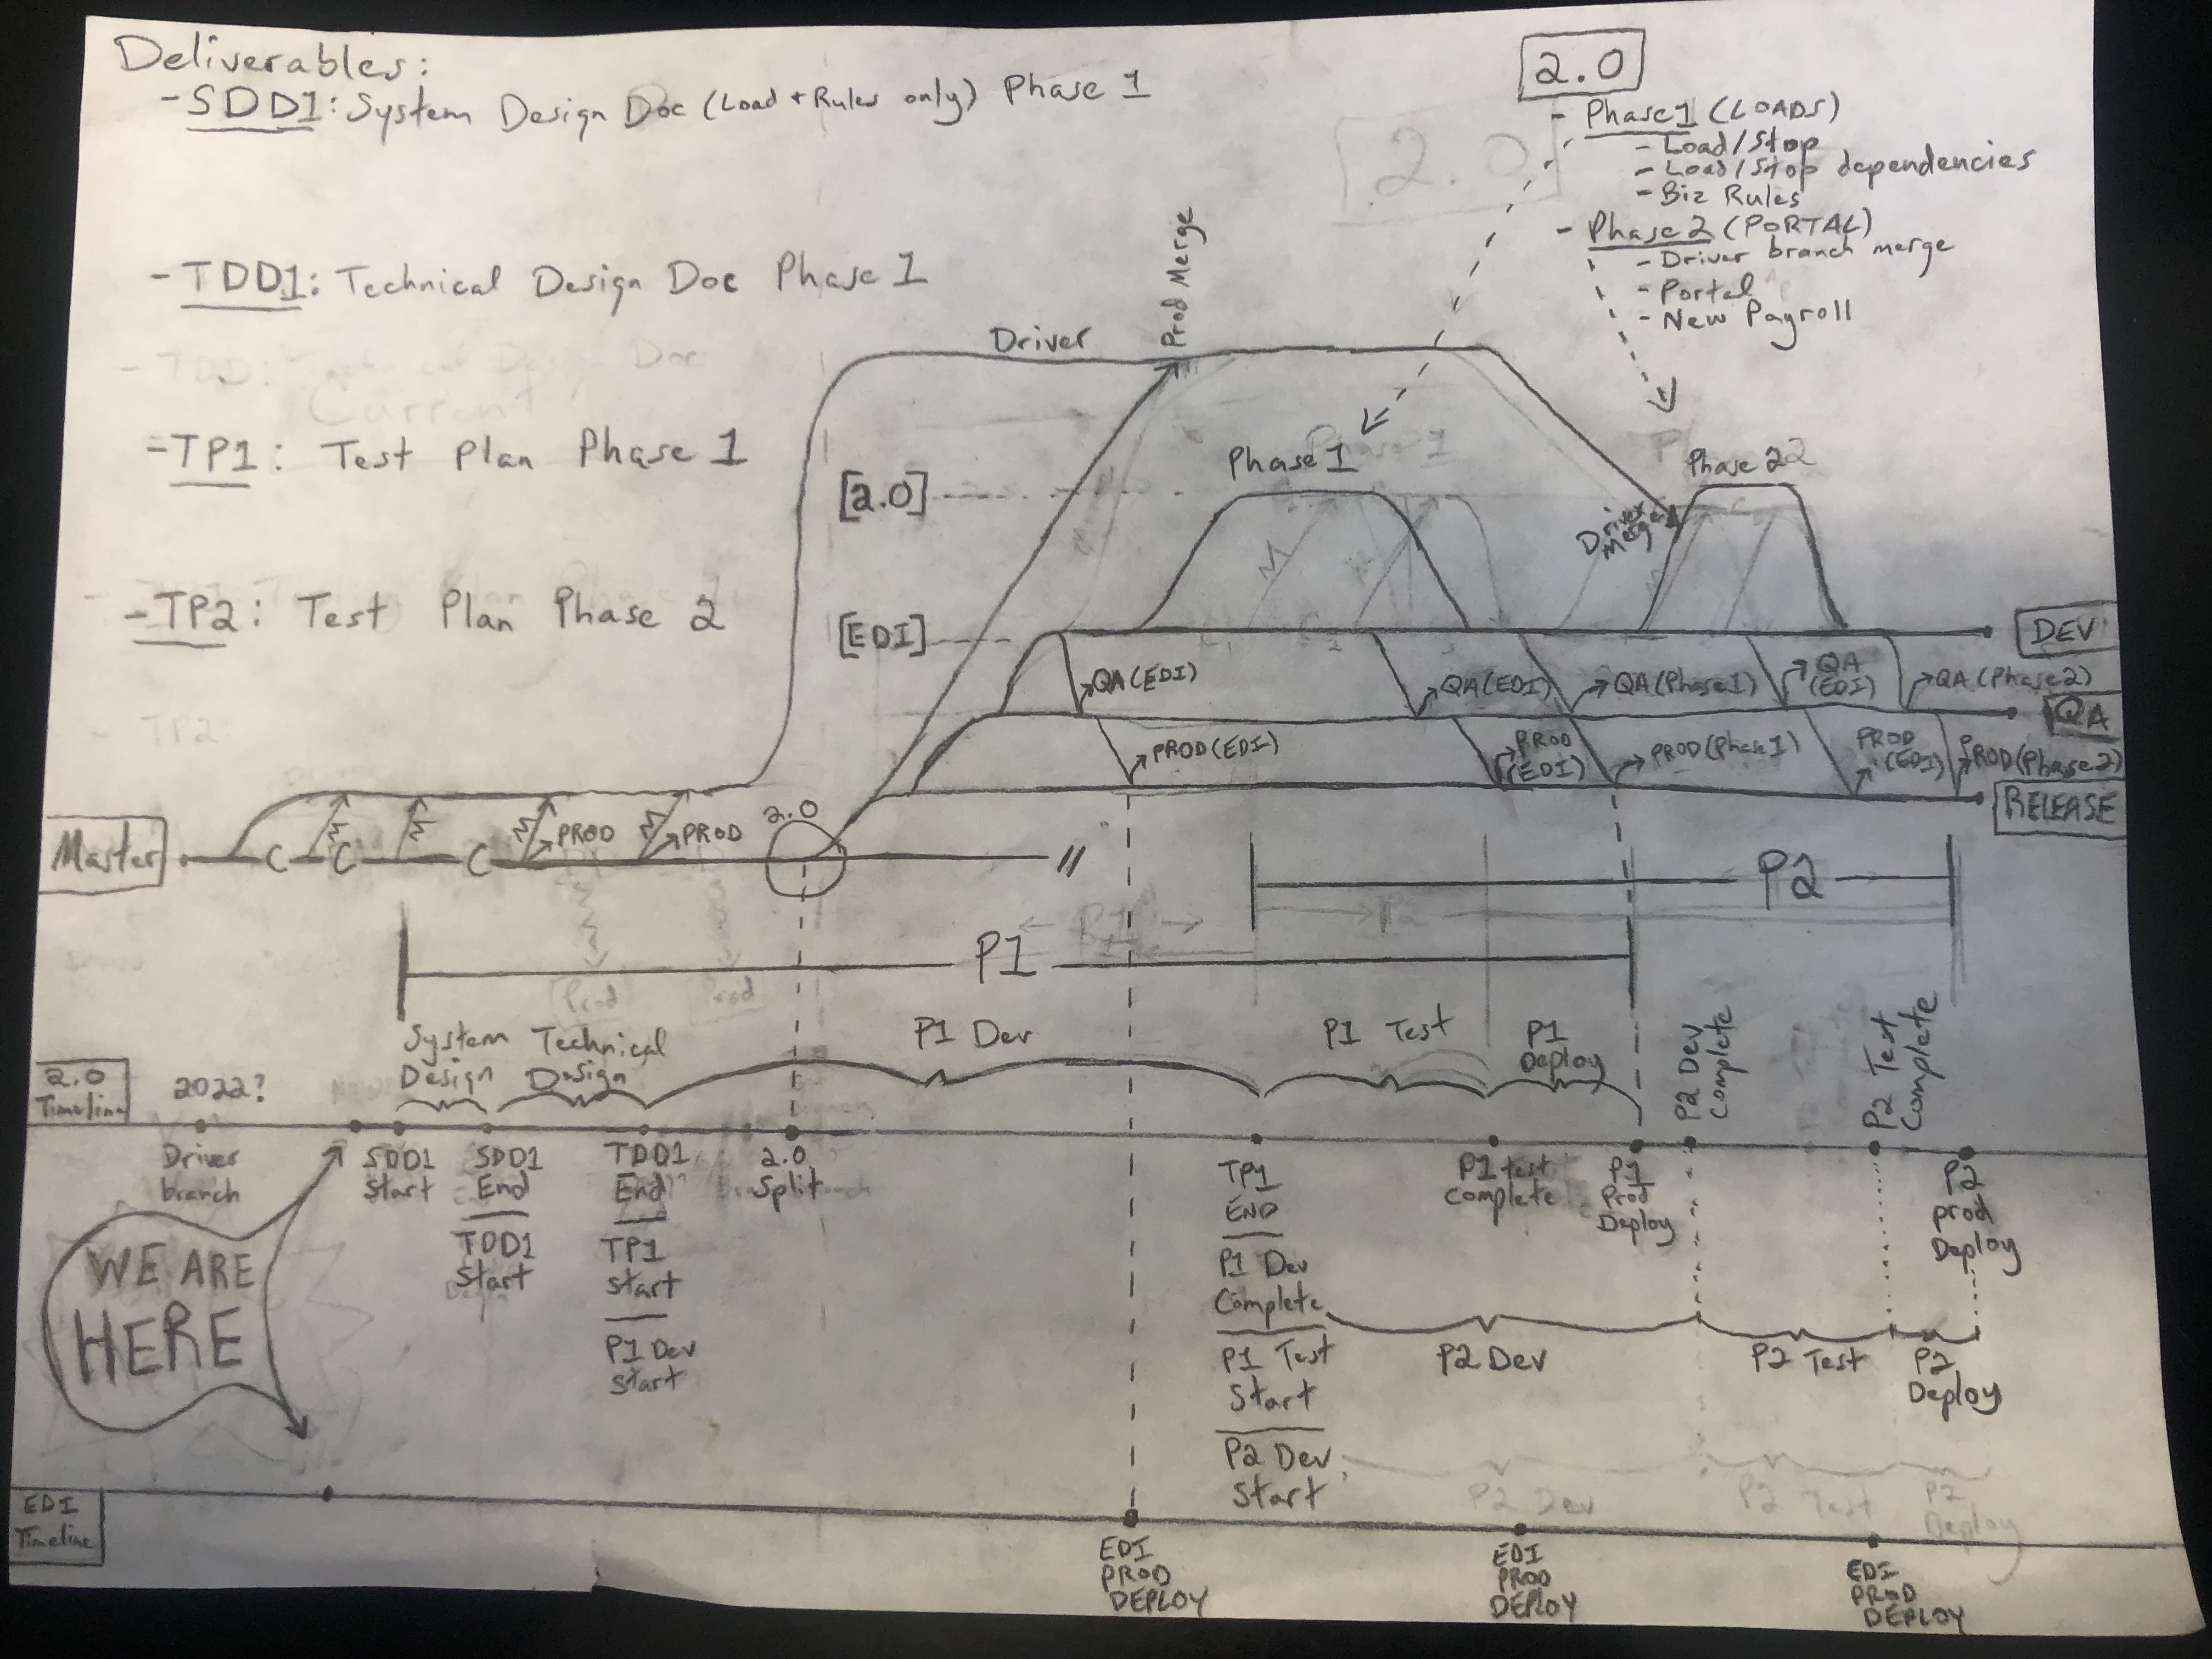 Deliverables:
- SDD1: System Design Doc (Load + Rules only) Phase 1
- TDD1: Technical Design Doc Phase 1
- TDD: Technical Design Doc
Current
- TP1: Test Plan Phase 1
- TP2: Test Plan Phase 2
- TP2
2.0
[2.0]
- Phase 1 (LOADS)
- Load/Stop
- Load/Stop dependencies
- Biz Rules
- Phase 2 (PORTAL)
- Driver branch merge
- Portal
- New Payroll
Driver
Prod Merge
Phase 1
Phase 2
Driver
Merge
[2.0]
[EDI]
DEV
QA (EDI)
QA (EDI)
QA (Phase 1)
QA
(EDI)
QA (Phase 2)
QA
PROD (EDI)
PROD
(EDI)
PROD (Phase 1)
PROD
(EDI)
PROD (Phase 2)
RELEASE
Master
C
C
C
M
M
M
M
PROD
PROD
2.0
//
P2
P1
Prod
Prod
System
Design
Technical
Design
P1 Dev
P1 Test
P1
Deploy
P2 Dev
Complete
P2 Test
Complete
2.0
Timeline
2022?
Driver
branch
SDD1
Start
SDD1
End
TDD1
Start
TDD1
End
TP1
Start
P1 Dev
Start
2.0
Split
TP1
END
P1 Dev
Complete
P1 Test
Start
P2 Dev
Start
P1 test
Complete
P1
Prod
Deploy
P2
prod
Deploy
WE ARE
HERE
P2 Dev
P2 Test
P2
Deploy
P2 Dev
P2 Test
P2
Deploy
EDI
Timeline
EDI
PROD
DEPLOY
EDI
PROD
DEPLOY
EDI
PROD
DEPLOY